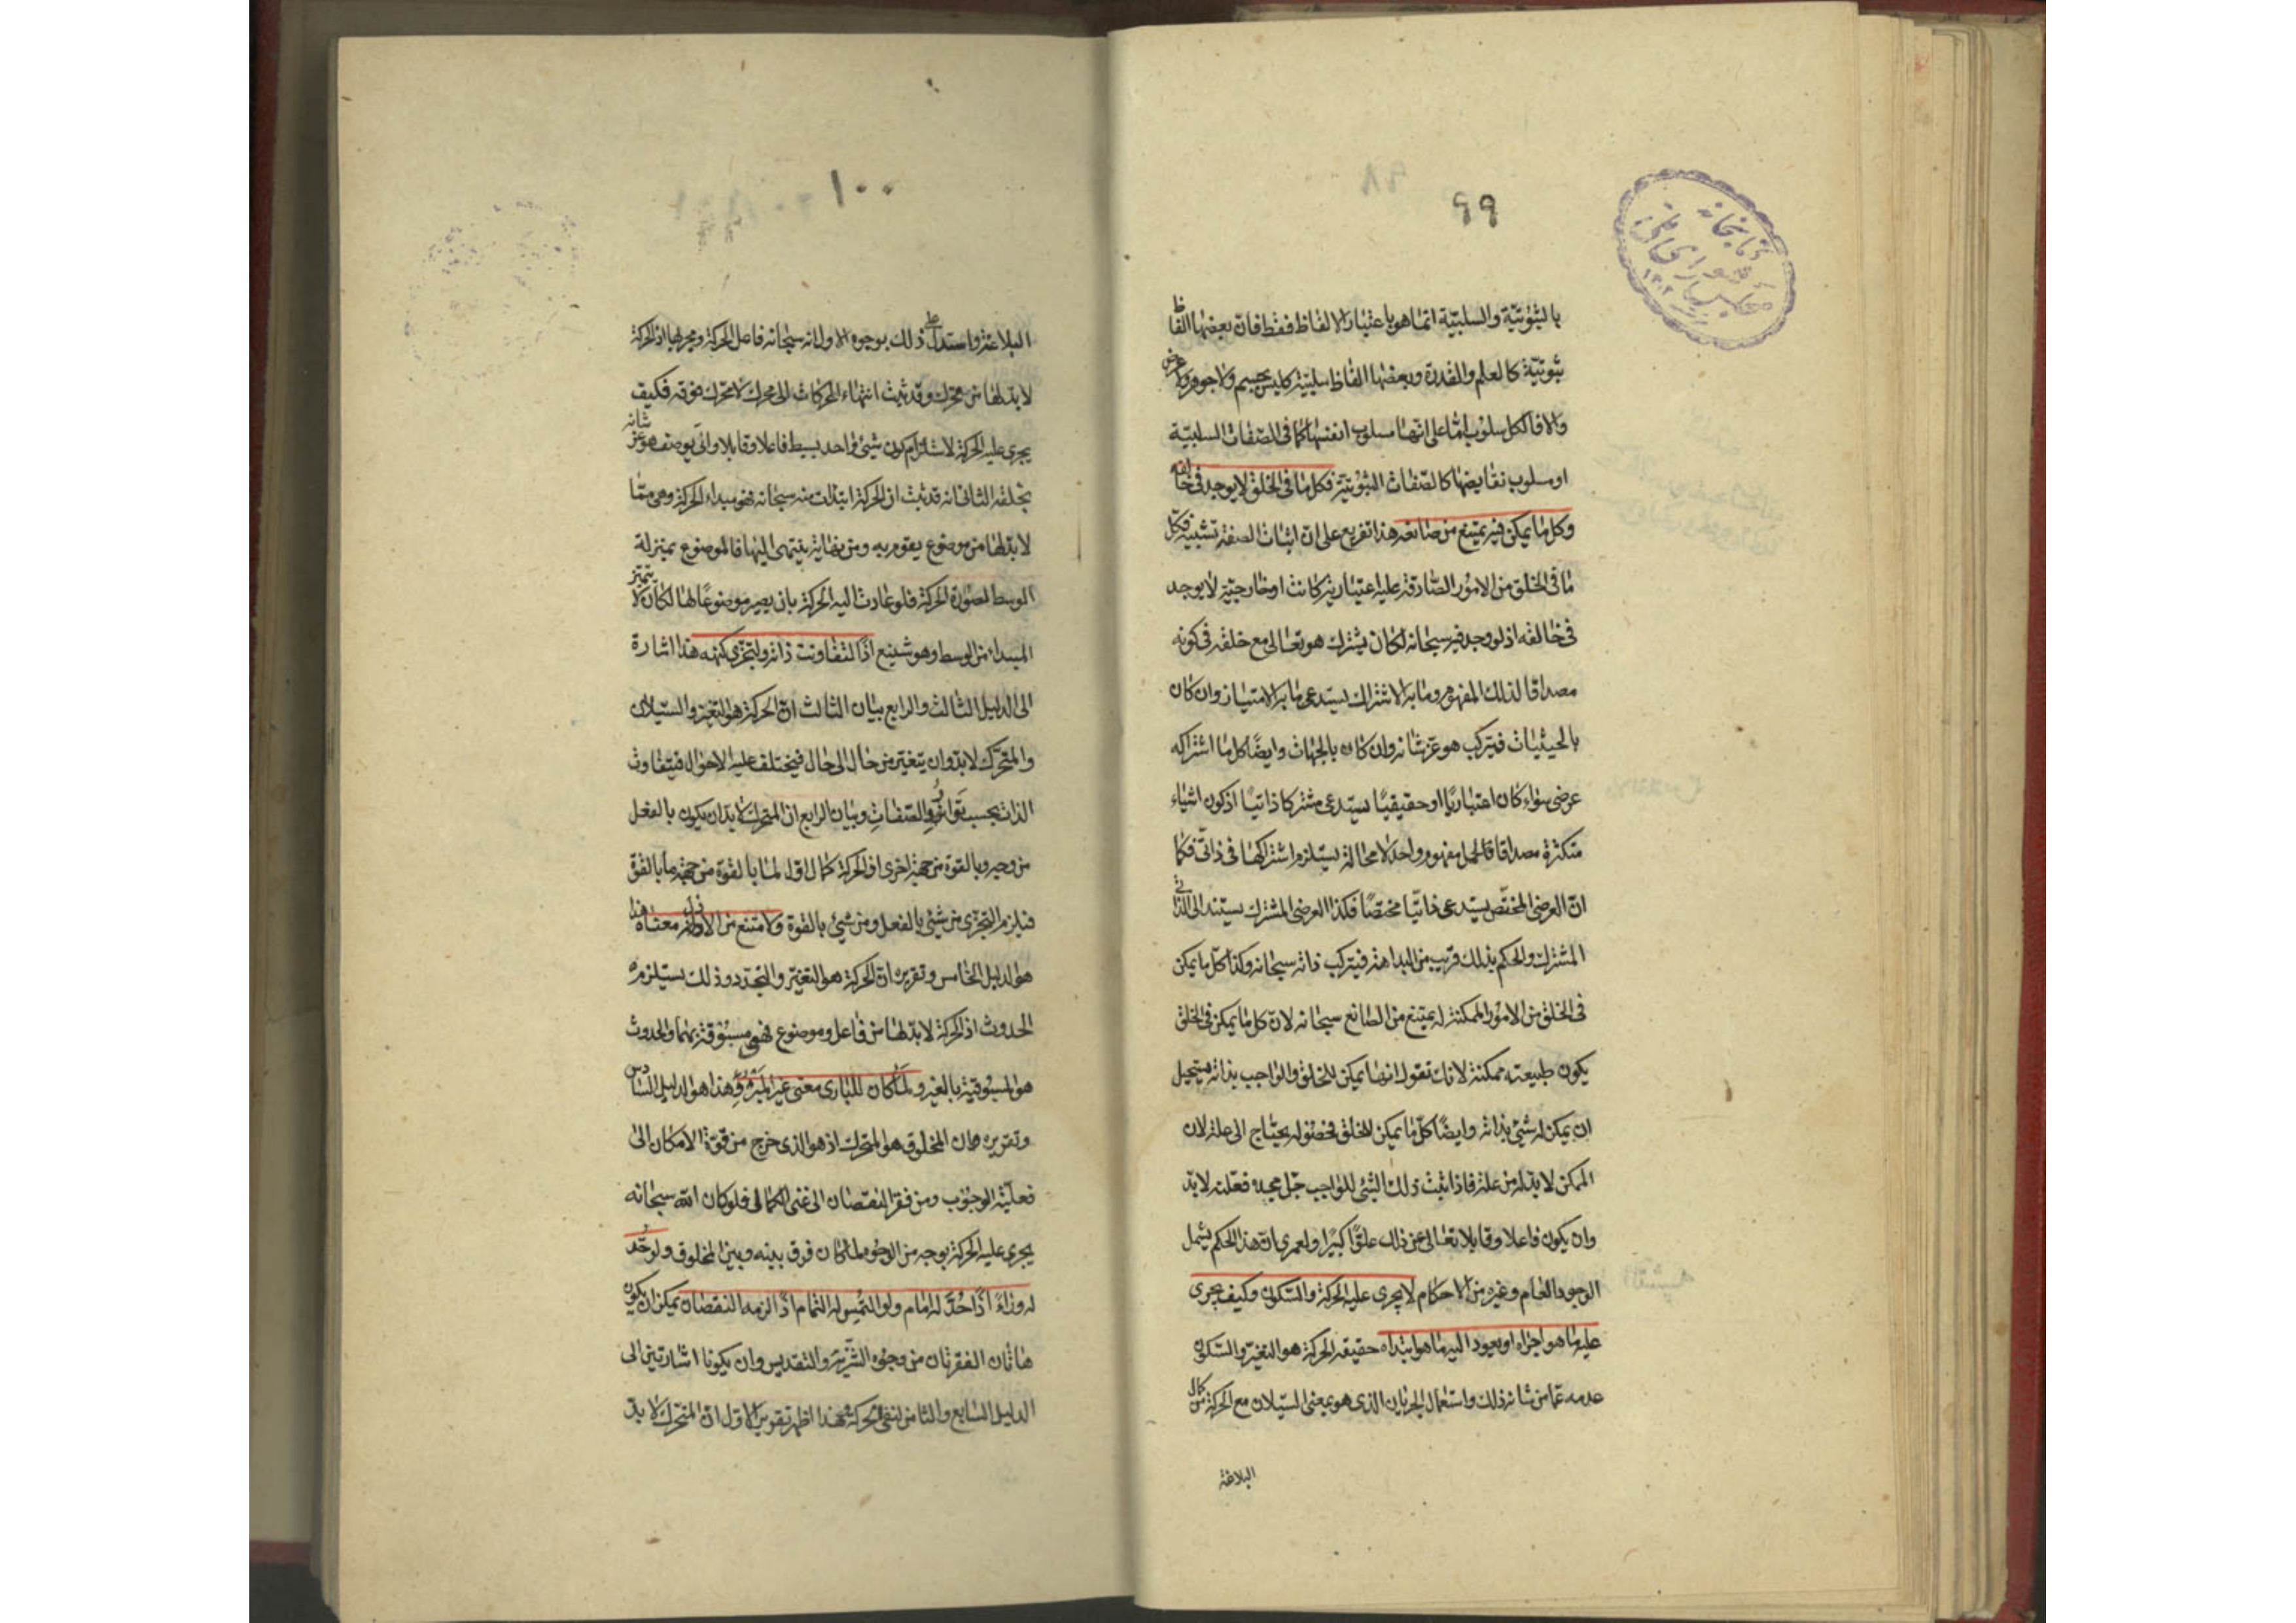 ٩٩
كتابخانه
مجلس شوراى ملى
١٣٠٢
بالثبوتيّة والسلبيّة انّما هو باعتبار الالفاظ فقط فانّ بعضها الفاظ
ثبوتيّة كالعلم والقدرة وبعضها الفاظ سلبيّة كليس بجسم ولا جوهر ولا عرض
والا فالكل سلوب امّا على انّها سلوب انفسها كما فى الصّفات السلبيّة
او سلوب نقايضها كالصّفات الثبوتيّة فكل ما فى الخلق لا يوجد فى خالقه
وكل ما يمكن فيه يمتنع من صانعه هذا تفريع على ان اثبات الصفة تشبيه فكل
ما فى الخلق من الامور الصّادقة عليه اعتبارية كانت او خارجيّة لا يوجد
فى خالقه اذ لو وجد فيه سبحانه لكان يشترك هو تعالى مع خلقه فى كونه
مصداقا لذلك المفهوم وما به الاشتراك يستدعى ما به الامتياز وان كان
بالحيثيات فيتركب هو عزّ شانه وان كان بالجهات وايضًا كل ما اشتراكه
عرضى سواء كان اعتباريًا او حقيقيًا يستدعى مشتركا ذاتيًا اذ كون اشياء
متكثرة مصداقا لحمل مفهوم واحد لا محالة يستلزم اشتراكها فى ذاتىّ فكما
انّ العرضى المختصّ يستدعى ذاتيًا مختصًا فكذا العرضى المشترك يستند الى الذاتى
المشترك والحكم بذلك قريب من البداهة فيتركب ذاته سبحانه وكذا كلّ ما يمكن
فى الخلق من الامور الممكنة له يمتنع من الصانع سبحانه لانّ كل ما يمكن فى الخلق
يكون طبيعته ممكنة لانك تقول انها يمكن للخلق والواجب بذاته يستحيل
ان يمكن له شىء بذاته وايضًا كلّ ما يمكن للخلق فحصوله يحتاج الى علة لان
الممكن لا بدّ له من علة فاذا ثبت ذلك الشىء للواجب جلّ مجده فعلته لا بدّ
وان يكون فاعلا وقابلا تعالى عن ذلك علوًّا كبيرًا ولعمرى انّ هذا الحكم يشمل
الوجود العام وغيره من الاحكام لا يجرى عليه الحركة والسّكون وكيف يجرى
عليه ما هو اجراه او يعود اليه ما هو ابتداه حقيقة الحركة هو التغيّر والسّكون
عدمه عمّا من شانه ذلك واستعمال الجريان الذى هو بمعنى السيلان مع الحركة من كمال
البلاغة
١٠٠
البلاغة واستدل على ذلك بوجوه الاول انه سبحانه فاعل الحركة ومجريها اذ الحركة
لا بدّ لها من محرّك وقد ثبت انتهاء المحركات الى محرك لا محرّك فوقه فكيف
يجرى عليه الحركة لاستلزام كون شىء واحد بسيط فاعلا وقابلا وانّى يوصف هو عزّ شانه
بخلقه الثانى انه قد ثبت ان الحركة ابتدات منه سبحانه فهو مبداء الحركة وهى ممّا
لا بدّ لها من موضوع يقوم به ومن نهاية ينتهى اليها فالموضوع بمنزلة
الوسط لصورة الحركة فلو عادت اليه الحركة بان يصير موضوعًا لها لكان لا يتميّز
المبداء من الوسط وهو شنيع اذًا لتفاوتت ذاته ولتجزّى كنهه هذا اشارة
الى الدليل الثالث والرابع بيان الثالث انّ الحركة هو التغيّر والسّيلان
والمتحرّك لا بدّ وان يتغيّر من حال الى حال فيختلف عليه الاحوال فيتفاوت
الذات بحسب توارد الصّفات وبيان الرابع ان المتحرك لا بدّ ان يكون بالفعل
من وجه وبالقوة من جهة اخرى اذ الحركة كمال اوّل لما بالقوة من جهة ما بالقوّة
فيلزم التجزّى من شىء بالفعل ومن شىء بالقوة ولامتنع من الازل معناه هذا
هو الدليل الخامس وتقريره انّ الحركة هو التغيّر والتجدّد وذلك يستلزمه
الحدوث اذ الحركة لا بدّ لها من فاعل وموضوع فهى مسبوقة بهما والحدوث
هو المسبوقية بالغير ولما كان للبارى معنى غير المبروء وهذا هو الدليل السّادس
وتقريره ان المخلوق هو المتحرك اذ هو الذى خرج من قوّة الامكان الى
فعليّة الوجوب ومن فقر النقصان الى غنى الكمال فلو كان الله سبحانه
يجرى عليه الحركة بوجه من الوجوه لما كان فرق بينه وبين المخلوق ولو حدّ
له وراء اذًا حُدّ له امام ولو التمس له التمام اذًا لزمه النقصان يمكن ان يكون
هاتان الفقرتان من وجوه التنزيه والتقديس وان يكونا اشارتين الى
الدليل السابع والثامن لنفى الحركة وهذا اظهر تقرير الاوّل انّ المتحرّك لا بدّ